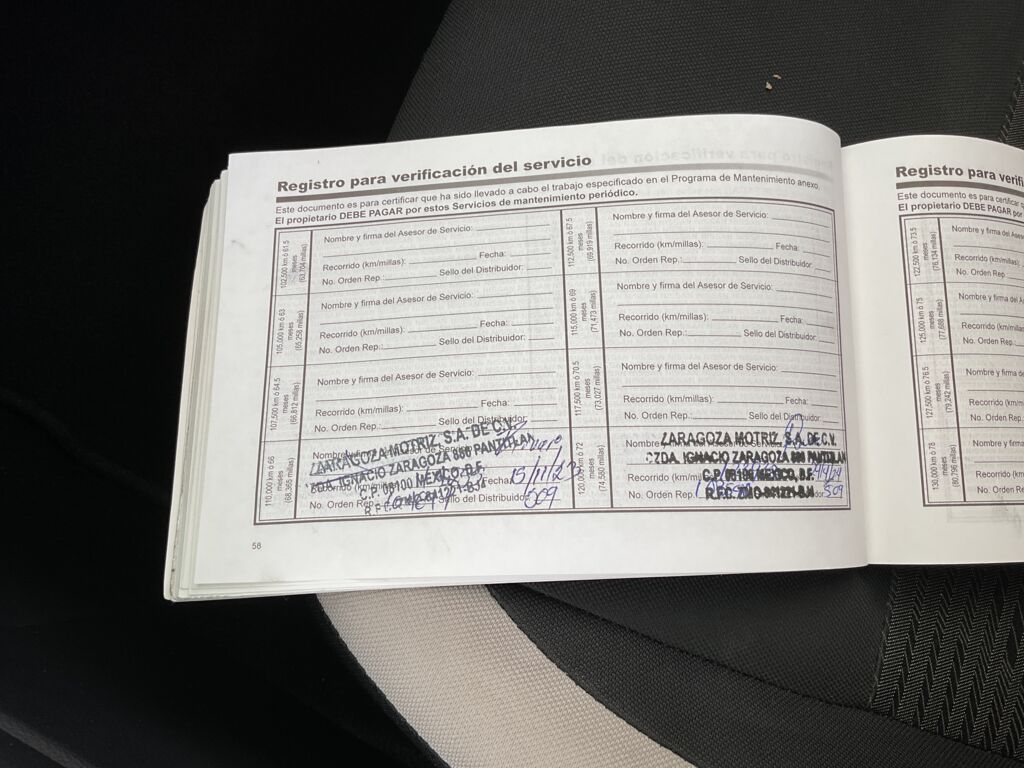 Registro para verificación del servicio
Este documento es para certificar que ha sido llevado a cabo el trabajo especificado en el Programa de Mantenimiento anexo.
El propietario DEBE PAGAR por estos Servicios de mantenimiento periódico.
102,500 km ó 61.5 meses (63,704 millas)
Nombre y firma del Asesor de Servicio:
Recorrido (km/millas): Fecha:
No. Orden Rep.: Sello del Distribuidor:
105,000 km ó 63 meses (65,258 millas)
Nombre y firma del Asesor de Servicio:
Recorrido (km/millas): Fecha:
No. Orden Rep.: Sello del Distribuidor:
107,500 km ó 64.5 meses (66,812 millas)
Nombre y firma del Asesor de Servicio:
Recorrido (km/millas): Fecha:
No. Orden Rep.: Sello del Distribuidor:
110,000 km ó 66 meses (68,365 millas)
ZARAGOZA MOTRIZ, S.A. DE C.V.
CZDA. IGNACIO ZARAGOZA 886 PANTITLAN
C.P. 08100 MEXICO, D.F.
Fecha:
No. Orden Rep. Sello del Distribuidor:
509
112,500 km ó 67.5 meses (69,919 millas)
Nombre y firma del Asesor de Servicio:
Recorrido (km/millas): Fecha:
No. Orden Rep.: Sello del Distribuidor:
115,000 km ó 69 meses (71,473 millas)
Nombre y firma del Asesor de Servicio:
Recorrido (km/millas): Fecha:
No. Orden Rep.: Sello del Distribuidor:
117,500 km ó 70.5 meses (73,027 millas)
Nombre y firma del Asesor de Servicio:
Recorrido (km/millas): Fecha:
No. Orden Rep.: Sello del Distribuidor:
120,000 km ó 72 meses (74,580 millas)
ZARAGOZA MOTRIZ, S.A. DE C.V.
CZDA. IGNACIO ZARAGOZA 886 PANTITLAN
C.P. 08100 MEXICO, D.F.
No. Orden Rep.
509
58
Registro para verifi
Este documento es para certificar q
El propietario DEBE PAGAR por
122,500 km ó 73.5 meses (76,134 millas)
Nombre y firma de
Recorrido (km/millas)
No. Orden Rep.:
125,000 km ó 75 meses (77,688 millas)
Nombre y firma del A
Recorrido (km/millas)
No. Orden Rep.:
127,500 km ó 76.5 meses (79,242 millas)
Nombre y firma de
Recorrido (km/mill
No. Orden Rep.:
130,000 km ó 78 meses (80,796 millas)
Nombre y firma
Recorrido (km/m
No. Orden Re